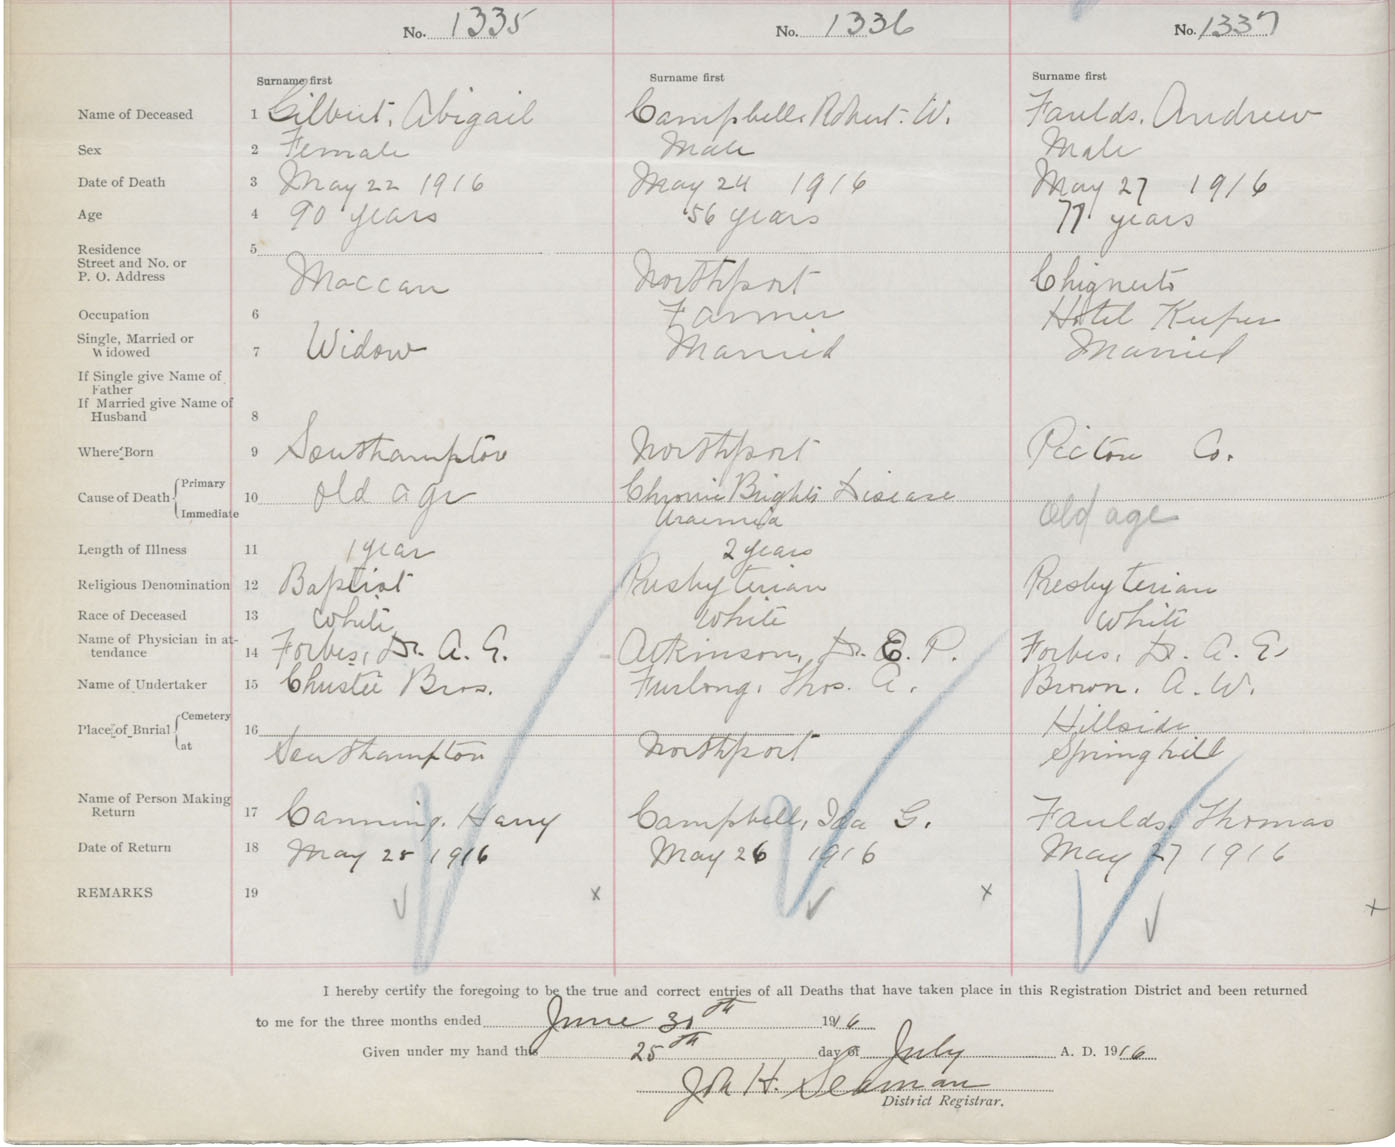 No. 1335 No. 1336 No. 1337
Surname first Surname first Surname first
Name of Deceased 1 Gilbert, Abigail Campbell, Robert W. Faulds, Andrew
Sex 2 Female Male Male
Date of Death 3 May 22 1916 May 24 1916 May 27 1916
Age 4 90 years 56 years 77 years
Residence 5
Street and No. or
P. O. Address Maccan Northport Chignecto
Occupation 6 Farmer Hotel Keeper
Single, Married or
Widowed 7 Widow Married Married
If Single give Name of
Father
If Married give Name of
Husband 8
Where Born 9 Southampton Northport Pictou Co.
Cause of Death Primary 10 Old age Chronic Brights Disease Old age
Immediate Uraemia
Length of Illness 11 1 year 2 years
Religious Denomination 12 Baptist Presbyterian Presbyterian
Race of Deceased 13 White White White
Name of Physician in at-
tendance 14 Forbes, Dr. A. E. Atkinson, Dr. E. P. Forbes, Dr. A. E.
Name of Undertaker 15 Christie Bros. Furlong, Thos. A. Brown, A. W.
Place of Burial Cemetery 16 Hillside
at Southampton Northport Springhill
Name of Person Making
Return 17 Canning, Harry Campbell, Ida G. Faulds, Thomas
Date of Return 18 May 25 1916 May 26 1916 May 27 1916
REMARKS 19 x x x
I hereby certify the foregoing to be the true and correct entries of all Deaths that have taken place in this Registration District and been returned
to me for the three months ended June 30th 1916
Given under my hand this 25th day of July A. D. 1916
H. Seaman
District Registrar.